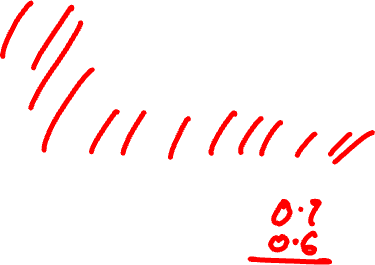 0.7
0.6